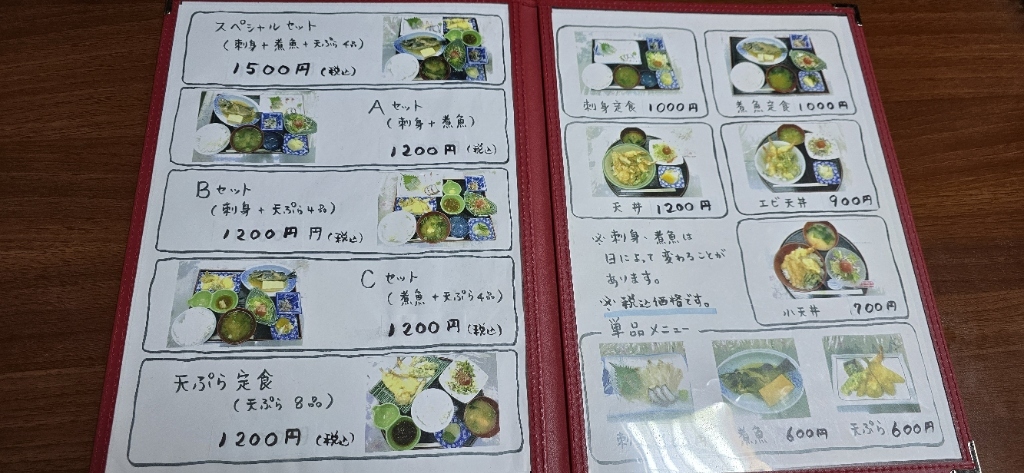 スペシャルセット
(刺身+煮魚+天ぷら4品)
1500円(税込)
Aセット
(刺身+煮魚)
1200円(税込)
Bセット
(刺身+天ぷら4品)
1200円円(税込)
Cセット
(煮魚+天ぷら4品)
1200円(税込)
天ぷら定食
(天ぷら8品)
1200円(税込)
刺身定食 1000円
煮魚定食 1000円
天丼 1200円
エビ天丼 900円
※刺身、煮魚は
日によって変わることが
あります。
※税込価格です。
小天丼 900円
単品メニュー
刺
煮魚 600円
天ぷら600円